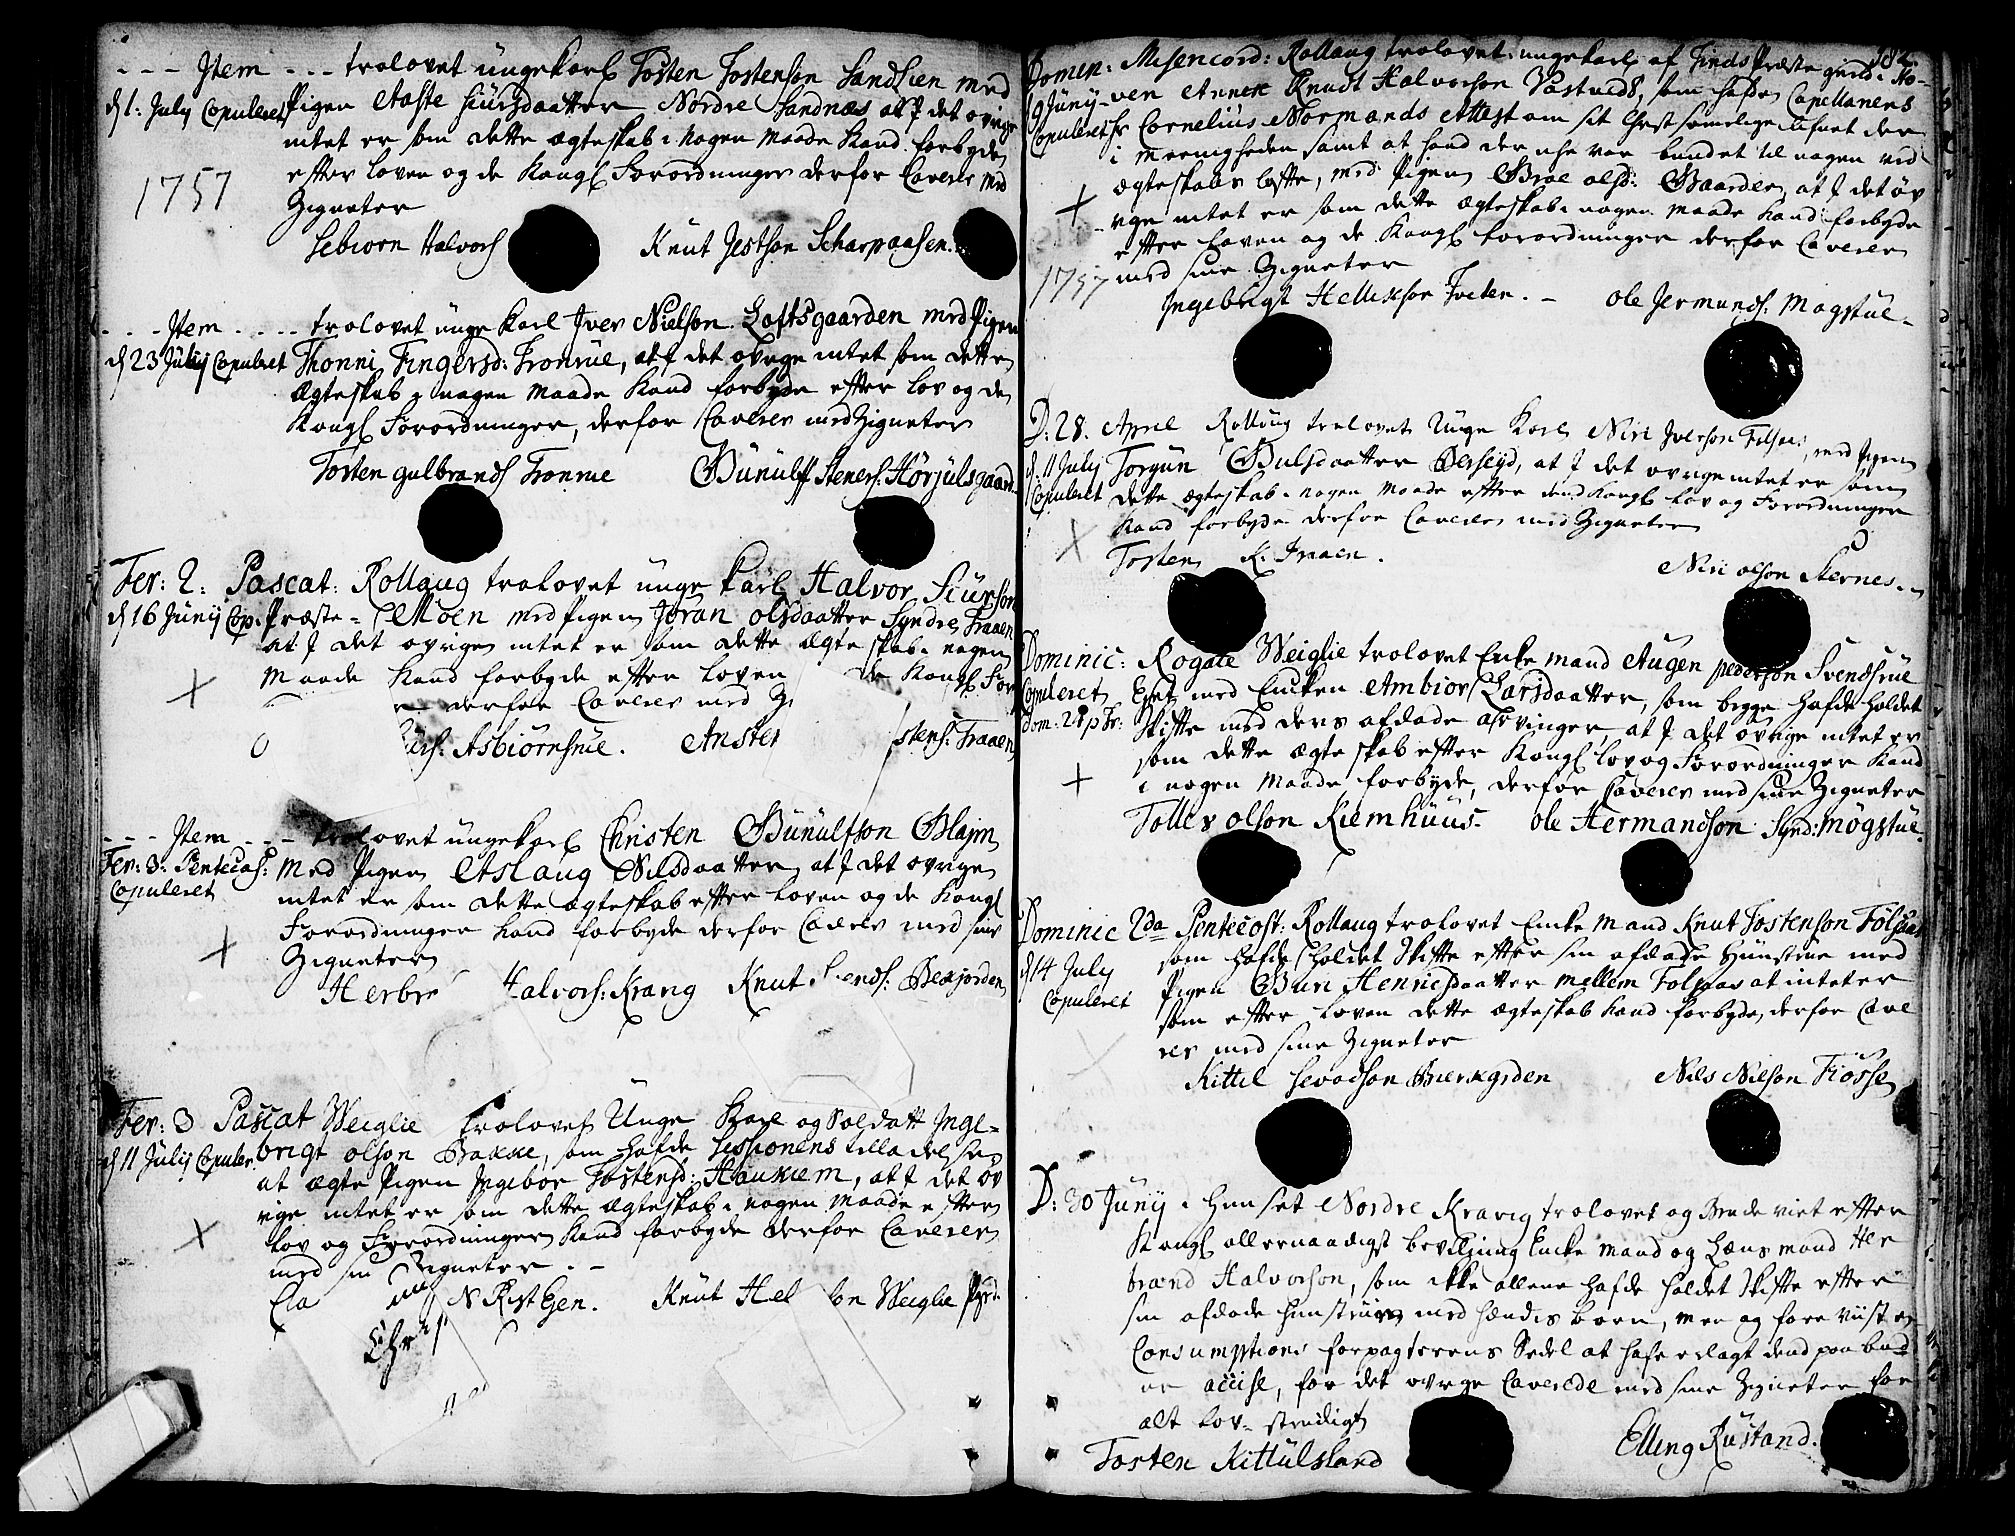 - - - Item - - - trolovet ungekarl Tosten Tostenson Sandlien med
d 1: July Copuleret Pigen Aaste Siursdaatter Nordre Sandnæs at J det øvrige
intet er som dette ægteskab i nogen maade kand forbyde
efter loven og de Kongl Forordninger derfor Caverer med
1757
Zigneter
Sebiorn Halvors Knut Jestson Scharpaasen.
- - - Item - - - - trolovet unge Karl Iver Nielson Loftsgaarden med Pigen
d 23 Julij Copuleret Thonni Fingersd: Fronrue, at J det øvrige intet som dette
Ægteskab i nogen maade kand forbyde efter lov og de
Kongl Forordninger, derfor Caverer med Zigneter
Tosten gulbrands Fronrue Gunulff Steners: Hørjulsgaard.
Fer: 2: Pascat: Rollaug trolovet unge karl Halvor Siurson
d 16 Junij Cop: Præste = Moen med Pigen Jøran olsdaatter Syndre Traaen
at J det øvrige intet er som dette ægteskab i nogen
Maade kand forbyde efter loven de Kongl For
derfor Caverer med Z
O Siurs: Asbiørnsrue. Ansten stens: Traaen
- - - Item - - - trolovet ungekarl Christen Gunulfson Glaim
Fer: 3: Pentecos: med Pigen Aslaug Nilsdaatter, at J det øvrige
Copuleret intet er som dette ægteskab efter loven og de Kongl
Forordninger kand forbyde derfor Caverer med sine
Zigneter
Herbr Halvors: Kravg Knut Svends: Bexjorden
Fer: 3 Pascat Weiglie trolovet Unge Karl og Soldatt Inge-
d 11 Julij Copuler. brigt olson Bakke, som hafde Sessionens tilladelse
at ægte Pigen Ingebor Tostensd: Haukiem, at J det øv
rige intet er som dette ægteskab i nogen maade efter
Lov og Forordninger kand forbyde derfor Caverer
med sin Zigneter . -
Cla N Rist Egen. Knut Hel son Weiglie
Chr
182.
Domin: Misericord: Rollaug trolovet ungekarl af Finds Præstegield i Ro-
9 Junij ven Annex Knut Halvorson Vastveds, som hafde Capellanens
Copuleret Hr Cornelius Normands Attest om sit Christsømelige lefnet der
i Meenigheden samt at hand der iche var bundet til nogen ved
ægteskabs løfte, med Pigen Broe olsd: Gaarden at J det øv
rige intet er som dette ægteskab i nogen maade kand forbyde
efter Loven og de Kongl forordninger derfor Caverer
1757 med sine Zigneter
Ingebrigt Hellikson Foeten. - ole Jermunds: Møgstue -
D: 28. April Rollaug trolovet Unge Karl Niri Iverson Følsaa, med Pigen
d 11 July Torgun Gulsdaatter Berseyd, at J det øvrige intet er som
Copuleret dette ægteskab i nogen maade efter dend Kongl lov og Forordninger
kand forbyde derfor Caverer med Zigneter
Tosten K: Traaen. Niri olson Sternes. -
Dominic: Rogate Weiglie trolovet Enkemand Augen pederson Svendsrue
Copuleret Eyet med Encken Ambior Larsdaatter, som begge hafde holdet
Dom: 2 p Tr: Skifte med deres afdøde arvinger, at J det øvrige intet er
som dette ægteskab efter Kongl lov og Forordninger kand
i nogen maade forbyde, derfor Caverer med sine Zigneter
Tollev olson Kiemhuus. ole Hermandson Synd: Møgstue.
Dominic 2da Pentecost: Rollaug trolovet Enke Mand Knut Tostenson Følsaa
som hafde holdet Skifte efter sin afdøde Hustrue med
d 14 July Pigen Guri Hennesdaatter mellem Følsaa at intet er
Copuleret som efter loven dette ægteskab kand forbyde, derfor Cave
rer med sine Zigneter
Kittil Sevodson Bierkgrden Nils Nilson Fiøsse
D: 30 Junij i huuset Nordre Kravig trolovet og Brudeviet efter
Kongl allernaadigst bevilgning Enkemand og Lænsmand Her
brand Halvorson, som ikke allene hafde holdet Skifte efter
sin afdøde hustrue med hendes børn, men og foreviist
Consumptions forpagterens Sedel at hafe erlagt dend paabu-
ne accise, for det øvrige Caverede med sine Zigneter for
alt Lov-stridigt
Tosten Kittulsland Elling Rustand.